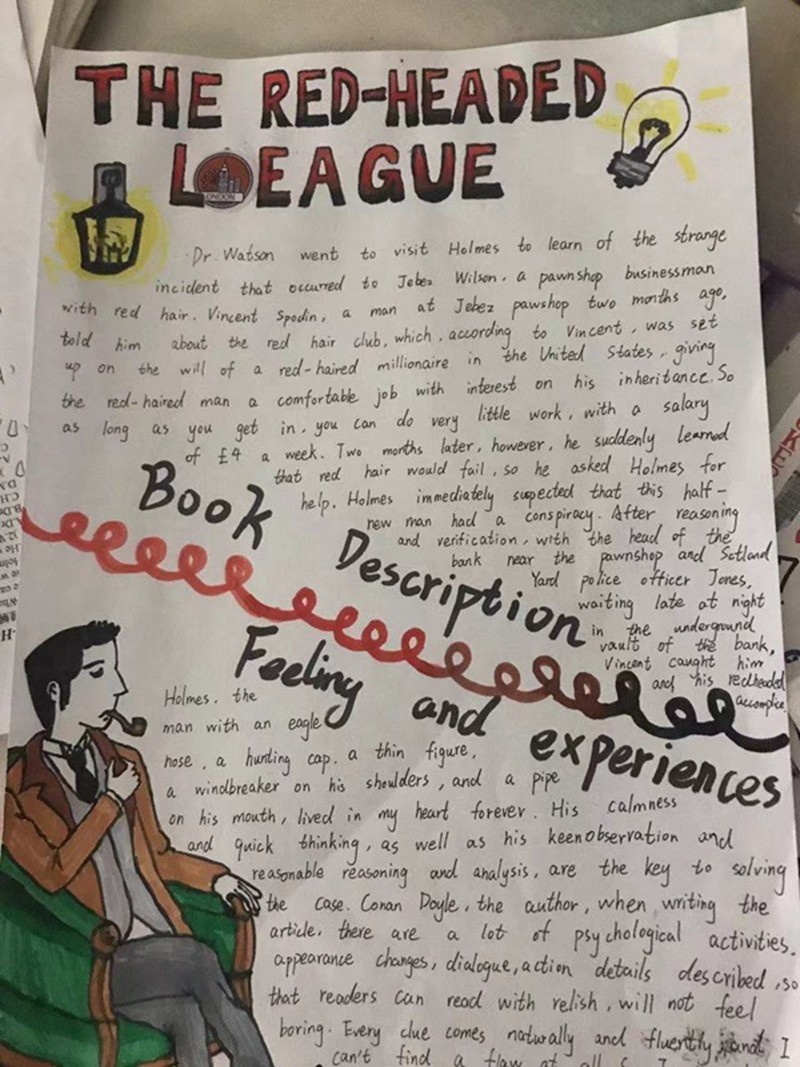 THE RED-HEADED
LEAGUE
LONDON
Dr. Watson went to visit Holmes to learn of the strange
incident that occurred to Jebez Wilson, a pawnshop businessman
with red hair. Vincent Spodin, a man at Jebez pawshop two months ago,
told him about the red hair club, which, according to Vincent, was set
up on the will of a red-haired millionaire in the United States, giving
the red-haired man a comfortable job with interest on his inheritance. So
as long as you get in, you can do very little work, with a salary
of £4 a week. Two months later, however, he suddenly learned
that red hair would fail, so he asked Holmes for
help. Holmes immediately suspected that this half-
new man had a conspiracy. After reasoning
and verification, with the head of the
bank near the pawnshop and Sctland
Yard police officer Jones,
waiting late at night
in the underground
vault of the bank,
Vincent caught him
and his redheaded
accomplice.
Book
Description
Feeling and experiences
Holmes, the
man with an eagle
nose, a hunting cap, a thin figure,
a windbreaker on his shoulders, and a pipe
on his mouth, lived in my heart forever. His calmness
and quick thinking, as well as his keen observation and
reasonable reasoning and analysis, are the key to solving
the case. Conan Doyle, the author, when writing the
article, there are a lot of psychological activities,
appearance changes, dialogue, action details described, so
that readers can read with relish, will not feel
boring. Every clue comes naturally and fluently, and I
can't find a flaw at all